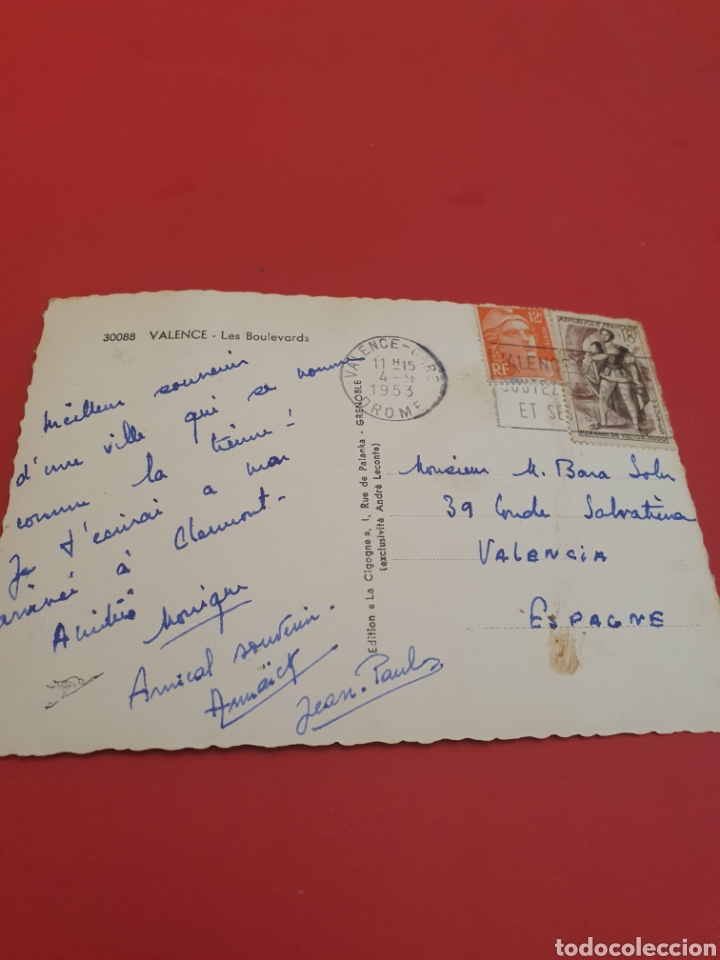 30088 VALENCE - Les Boulevards
Meilleur souvenir
d'une ville qui se nomme
comme la tienne!
Je t'écrirai a mon
arrivée à Clermont-
Amitiés Monique
Amical souvenir.
Annaïck
Jean-Paul
Edition « La Cigogne », 1, Rue de Palanka - GRENOBLE
(exclusivité André Leconte)
VALENCE-GARE
11 H 15
4-
1953
DROME
VALENCE
ET SES
12F
RF
REPUBLIQUE FRANÇAISE
18F
HERNANI DE VICTOR HUGO
Monsieur M. Bara Soler
39 Conde Salvatièra
VALENCIA
ESPAGNE
todocoleccion
todocoleccion.net